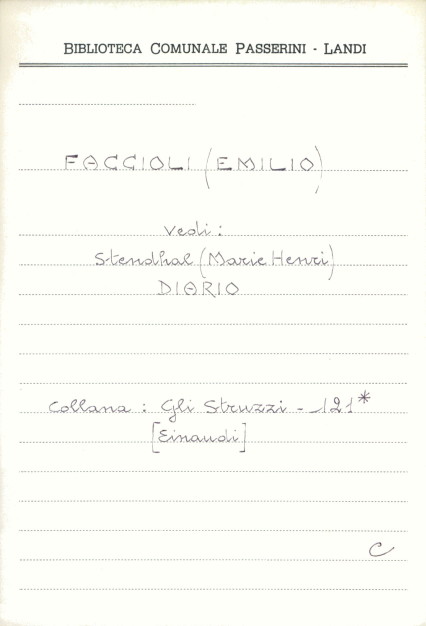 BIBLIOTECA COMUNALE PASSERINI - LANDI
FACCIOLI (EMILIO)
Vedi:
Stendhal (Marie Henri)
DIARIO
Collana: Gli Struzzi - 121*
[Einaudi]
C